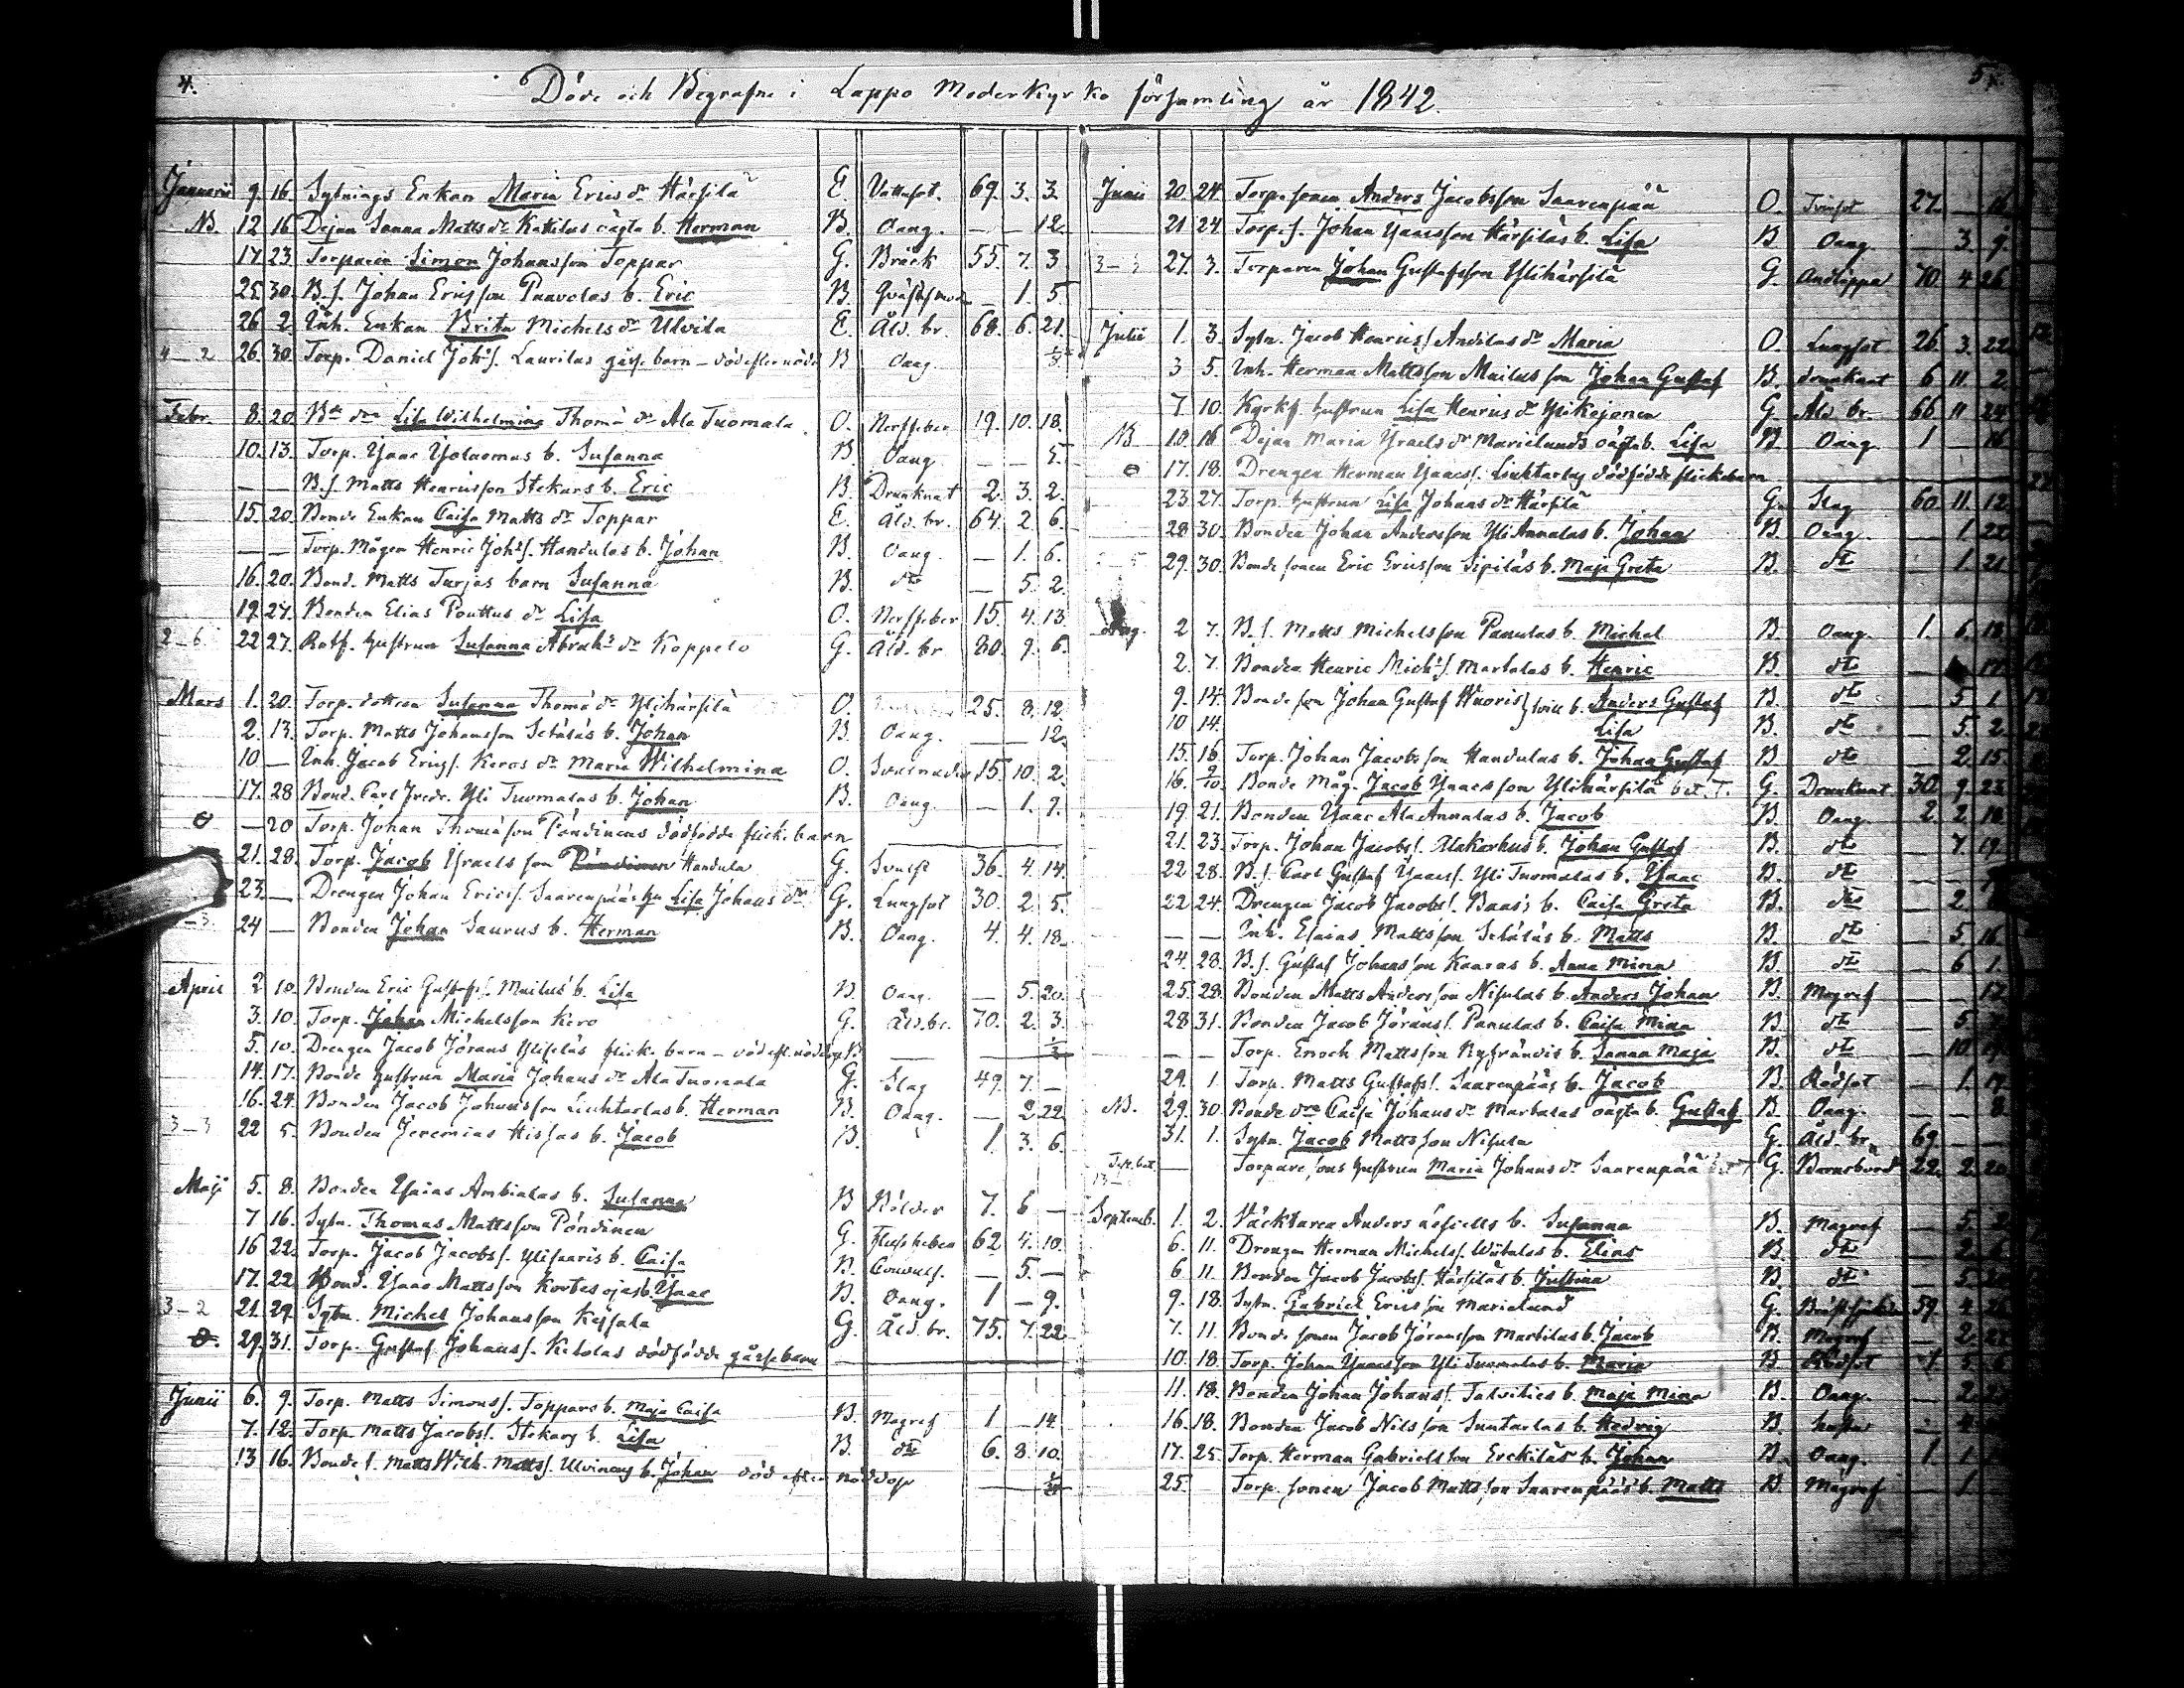 4.
Döde och Begrafne i Lappo Moderkyrko församling år 1842.
5.
Januarii 9. 16. Sytnings Enkan Maria Erics dr Härsilä E. Vattusot. 69. 3. 3.
NB. 12 16 Dejan Sanna Matts dr Kattilus oägta b. Herman B. Oang. — — 12.
17. 23. Torparen Simon Johansson Toppar G. Bräck 55. 7. 3
25. 30. B.s. Johan Ericsson Paavolas b. Eric B. — 1. 5.
26. 2. Inh. Enkan Brita Michels dr Ulvila E. Åld. br. 68. 6. 21.
4—2 26. 30. Torp. Daniel Johs s. Laurilas gåsse barn — död efter nödd B Oang
Febr. 8. 20. Lisa Wilhelmina Thomæ dr Ala Tuomala O. Nerffeber 19. 10. 18.
10. 13. Torp. Isaac b. Susanna B Oang — — 5.
— — B.s. Matts Henricsson Stekars b. Eric B. Drunknat 2. 3. 2.
15. 20 Bonde Enkan Caisa Matts dr Toppar E. Åld. br. 64. 2. 6.
— — Torp. Mågen Henric Johs s. Handulas b. Johan B. Oang. — 1. 6.
16. 20. Bond. Matts Turjas barn Susanna B. dto — 5. 2.
19. 27. Bonden Elias Pouttus dr Lisa O. Nerffeber 15. 4. 13.
2—6 22 27. Hustrun Susanna Abrah. dr Koppelo G. Åld. br 80. 9. 6.
Mars 1. 20. Torp. dottren Susanna Thomæ dr Ylihärsilä O. 25. 8. 12
2. 13. Torp. Matts Johansson Setäläs b. Johan B. Oang. — — 12.
10. — Inh. Jacob Erics s. Keros dr Maria Wilhelmina O. 15. 10. 2.
17. 28 Bond. Carl Fredr. Yli Tuomalas b. Johan B. Oang. — 1. 7.
— 20 Torp. Johan Thomasson Pöndinens dödfödda flick. barn
21. 28. Torp. Jacob Israelsson Handula G. 36. 4. 14.
23. — Drengen Johan Erics s. Saarenpääs hu Lisa Johans dr G. Lungsot 30. 2. 5.
—3. 24 — Bonden Johan Saurus b. Herman B. Oang. 4. 4. 18.
April 2 10. Bonden Eric Gustafs s. Mailus b. Lisa B. Oang. — 5. 20.
3. 10. Torp. Johan Michelsson Kero G. Åld. br. 70. 2. 3.
5. 10. Drengen Jacob Jörans flick. barn — död eft. nöddop B —
14. 17. Bonde hustrun Maria Johans dr Ala Tuomala G. Slag 49. 7. —
16. 24. Bonden Jacob Johansson Liuhtarlas b. Herman B. Oang. — 2. 22
3—3 22 5. Bonden Jeremias Hissas b. Jacob B. 1. 3. 6.
Maji 5. 8. Bonden Isaias Ambialas b. Susanna B 7. 6 —
7 16. Sytn. Thomas Mattsson Pöndinen G. 62. 4. 10.
16 22. Torp. Jacob Jacobs s. Ylisaaris b. Caisa B. Convuls. — 5. —
17. 22. Bond. Isaac Mattsson Kortesojas b. Isaac B. Oang. 1 — 9.
3—2 21. 29. Sytn. Michel Johansson Kessala G. Åld. br. 75. 7. 22
29. 31. Torp. Gustaf Johans s. Ketolas dödfödde gåssebarn
Junii 6. 9. Torp. Matts Simons s. Toppars b. Maja Caisa B. Magref 1 — 14.
7. 12. Torp. Matts Jacobs s. Stekars b. Lisa B. dto 6. 8. 10.
13 16. Bonde s. Matts Wilh. Matts s. Ulvinens b. Johan död efter nöddop
Junii 20. 24. Torpsonen Anders Jacobsson Saarenpää O. Tvinsot 27. — 16.
21 24. Torp. s. Johan Isaacsson Härsiläs b. Lisa B Oang. 3. 9.
3—3 27. 3. Torparen Johan Gustafsson Ylihärsilä G. Andtäppa 70. 4 26.
Julii 1. 3. Sytn. Jacob Henrics s. Andilas dr Maria O. Lungsot 26. 3. 22.
3 5. Inh. Herman Mattsson Mailus son Johan Gustaf B. drunknat 6 11. 2.
7 10. Kyrkf. hustrun Lisa Henrics dr G. Åld. br. 66 11 24.
NB 10. 16 Dejan Maria Israels dr Marielunds oägta b. Lisa B. Oang 1 — 16.
17. 18. Drengen Herman Isaacs s. Liuhtarlas dödfödde flickebarn
23. 27. Torp. hustrun Lisa Johans dr Härsilä G. Slag 60. 11. 12.
28 30. Bonden Johan Andersson Yli Annalas b. Johan B. Oang. — 1. 22.
29. 30. Bonde sonen Eric Ericsson Sipiläs b. Maja Greta B. dto — 1. 21.
Aug. 2 7. B.s. Matts Michelsson Panulas b. Michel B. Oang. 1. 6. 18.
2. 7. Bonden Henric Michs s. Marbalas b. Henric B dto
9. 14. Bonde son Johan Gustaf Wuoris tvill. b. Anders Gustaf B. dto 5. 1.
10 14. Lisa B. dto — 5. 2.
15. 16 Torp. Johan Jacobsson Handulas b. Johan Gustaf B dto — 2. 15.
16. Bonde Måg. Jacob Isaacsson Ylihärsilä G. Drunknat 30. 9. 23.
19. 21. Bonden Isaac Ala Annalas b. Jacob B. Oang. 2. 2. 18.
21. 23. Torp. Johan Jacobs s. Alakarhus b. Johan Gustaf B. dto — 7. 19.
22 28. B.s. Carl Gustaf Isaacs s. Yli Tuomalas b. Isaac B. dto —
22 24. Drengen Jacob Jacobs s. b. Caisa Greta B. dto — 2.
— — Inh. Esaias Mattsson Setäläs b. Matts B. dto — 5. 16.
24. 28. B.s. Gustaf Johansson Kaaras b. Anna Mina B. dto 6 1.
25. 28. Bonden Matts Andersson Nisulas b. Anders Johan B. Magref — 12
28 31. Bonden Jacob Jörans s. Panulas b. Caisa Mina B. dto 5.
— — Torp. Enoch Mattsson b. Sanna Maja B. dto 10.
29. 1. Torp. Matts Gustafs s. Saarenpääs b. Jacob B. Rödsot — 1. 14.
NB. 29. 30. Bonde dr Caisa Johans dr Marbalas oägta b. Gustaf B. Oang. — — 8.
31. 1. Sytn. Jacob Mattsson Nisula G. Åld. br. 69. — —
Torpare sons hustrun Maria Johans dr Saarenpää G. Barnsbörd 22. 2. 20.
Septemb. 1. 2. Väcktaren Anders b. Susanna B. Magref — 5.
6. 11. Drengen Herman Michels s. b. Elias B. dto — 2.
6 11. Bonden Jacob Jacobs s. Härsiläs b. Justina B. dto — 5.
9. 18. Sytn. Gabriel Ericsson Marielund G. 59. 4.
7. 11. Bonde sonen Jacob Jöransson Marbilas b. Jacob B. Magref 2.
10. 18. Torp. Johan Isaacsson Yli Tuomalas b. Maria B Rödsot 1. 5.
11. 18. Bonden Johan Johans s. Talvities b. Maja Mina B. Oang. 2
16. 18. Bonden Jacob Nilsson Luntarlas b. Hedvig B. hosta
17. 25. Torp. Herman Gabrielsson Erckiläs b. Johan B. Oang. 1. 1
25. Torp. sonen Jacob Mattsson Saarenpääs b. Matts B. Magref 1.